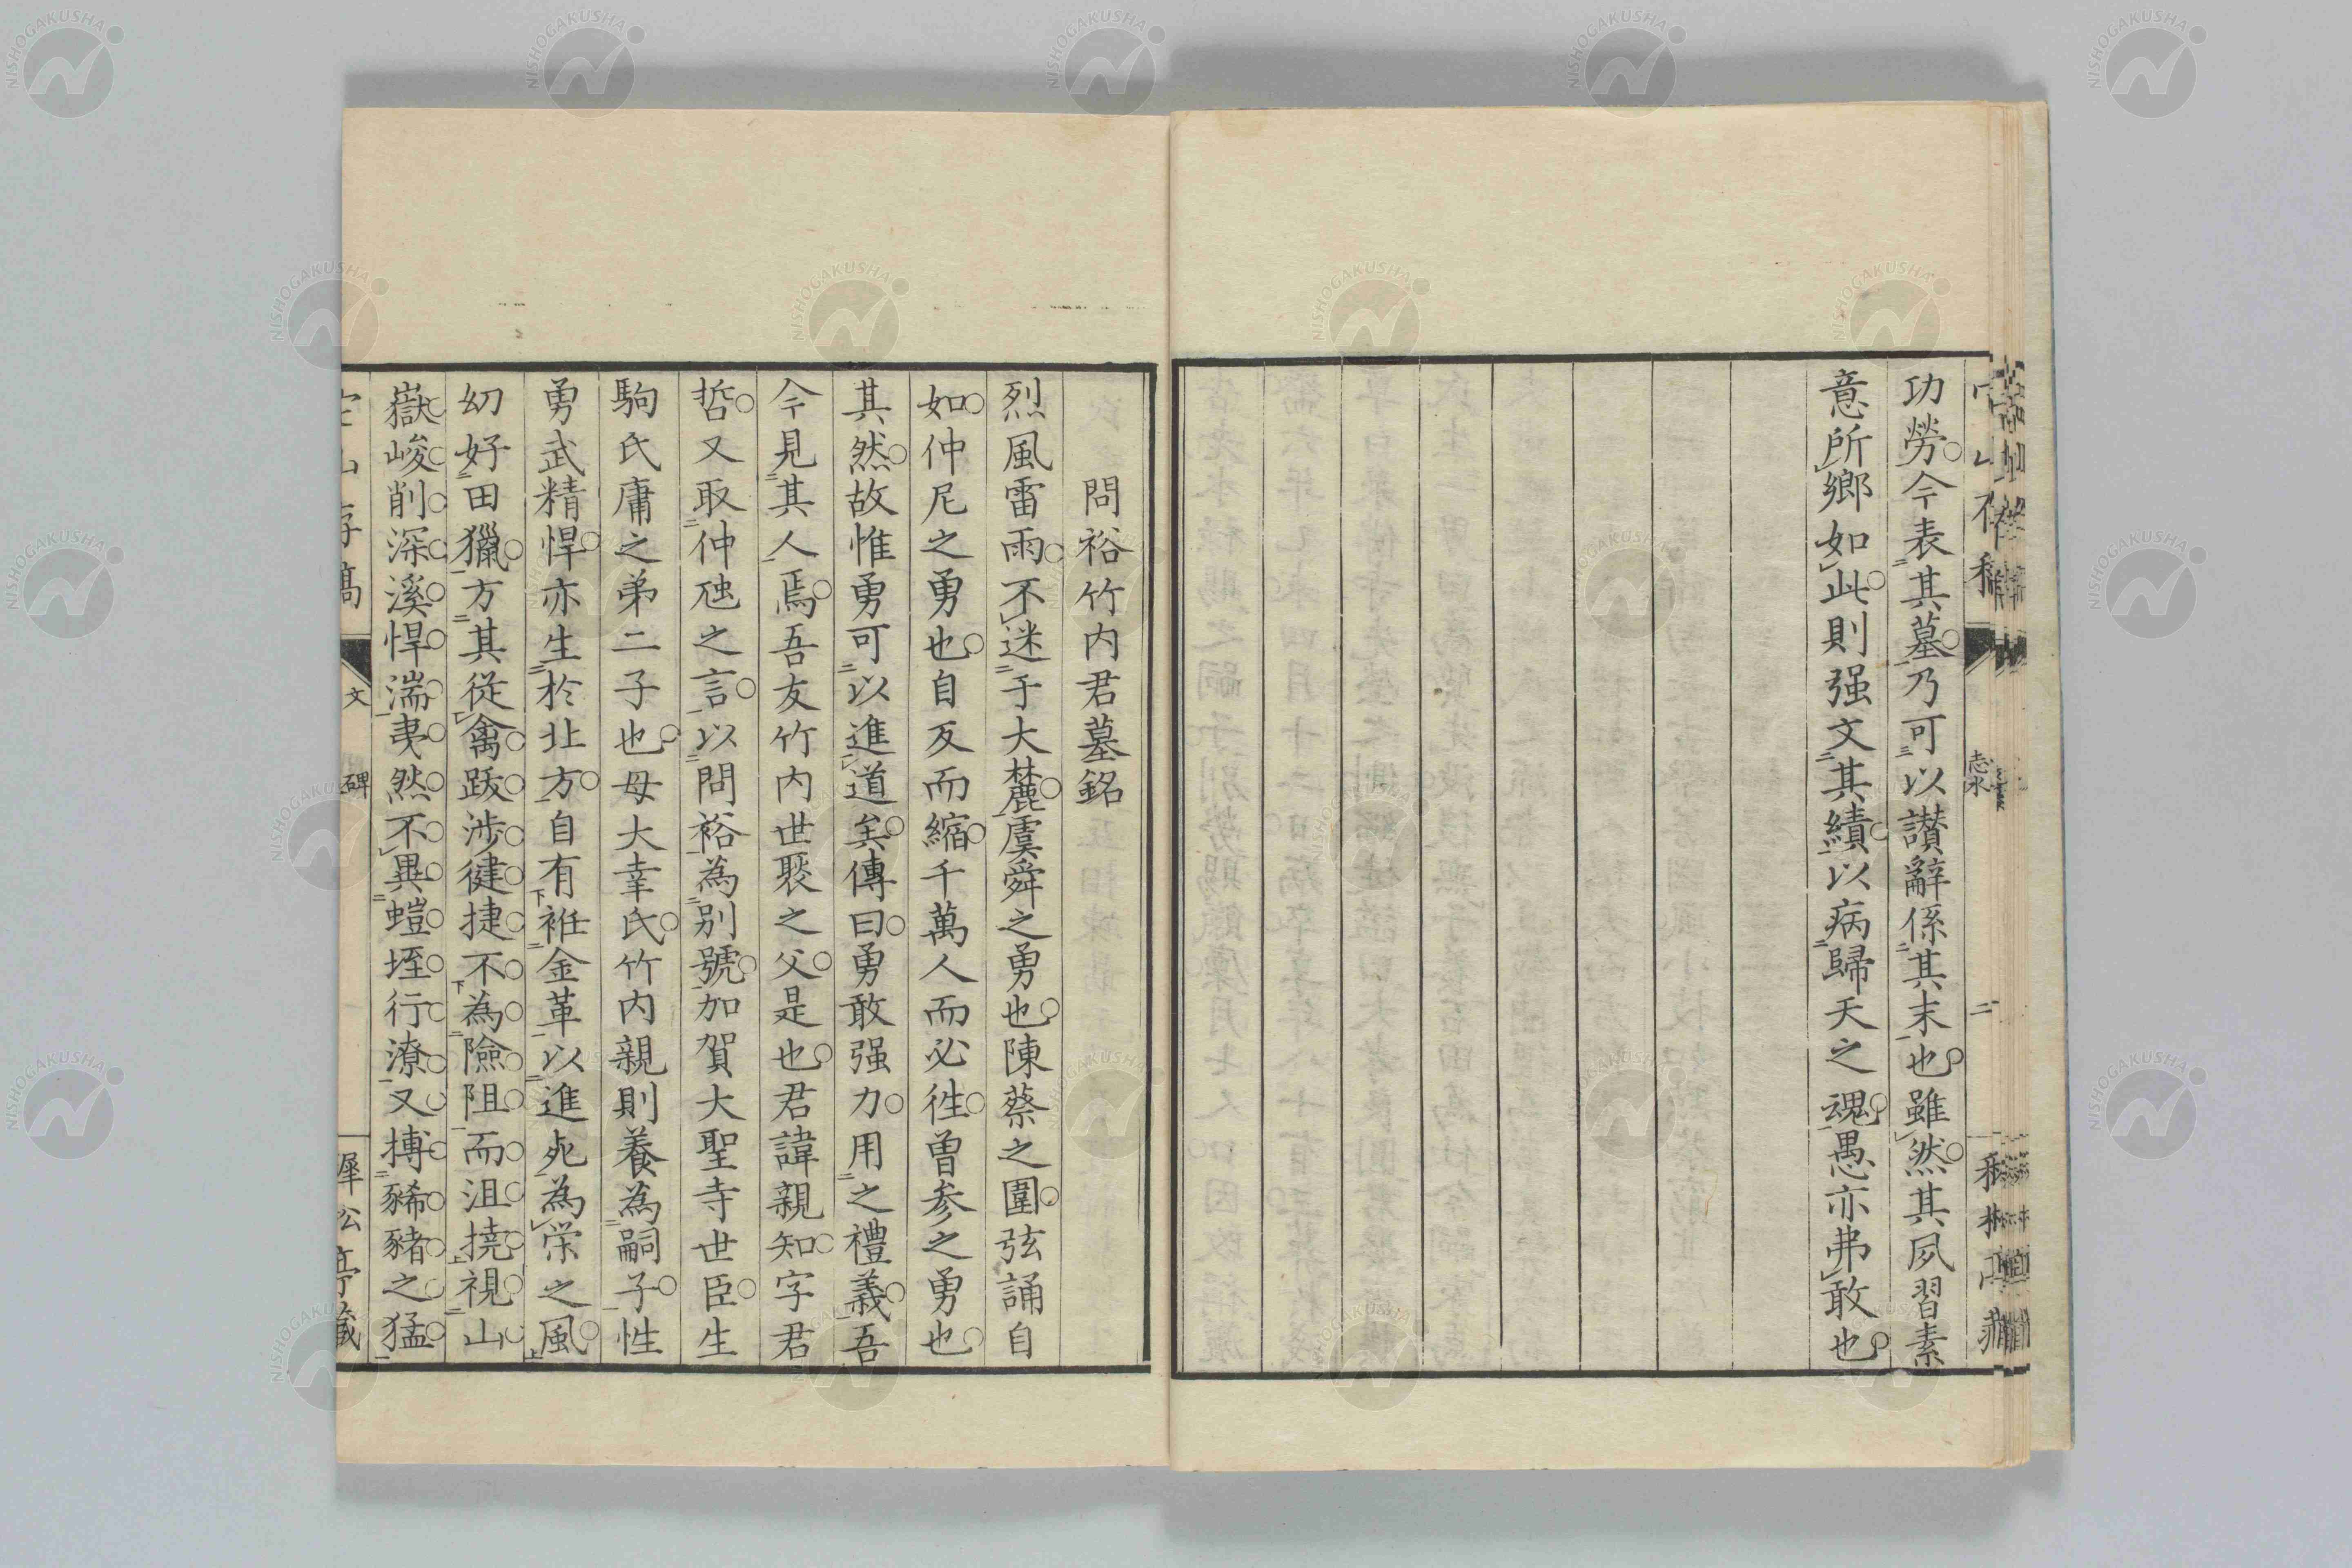 功勞今表其墓乃可以讃辭係其末也雖然其夙習素
意所鄉如此則强文其績以病歸天之魂愚亦弗敢也
問裕竹内君墓銘
烈風雷雨不迷于大麓虞舜之勇也陳蔡之圍弦誦自
如仲尼之勇也自反而縮千萬人而必徃曾参之勇也
其然故惟勇可以進道矣傳曰勇敢强力用之禮義吾
今見其人焉吾友竹内世聚之父是也君諱親知字君
哲又取仲虺之言以問裕為别號加賀大聖寺世臣生
駒氏庸之弟二子也母大幸氏竹内親則養為嗣子性
勇武精悍亦生於北方自有袵金革以進死為栄之風
幼好田獵方其從禽跋涉健捷不為險阻而沮撓視山
嶽峻削深溪悍湍夷然不異螘垤行潦又搏豨豬之猛
文 碑
NISHOGAKUSHA